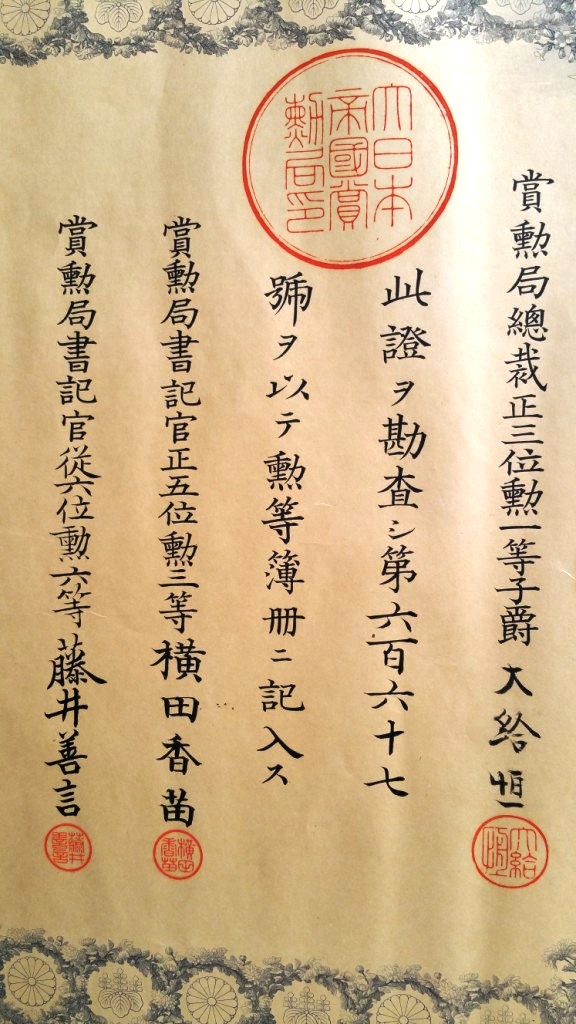 賞勲局總裁正三位勲一等子爵大給恒
大日本
帝國賞
勲局印
此證ヲ勘査シ第六百六十七
號ヲ以テ勲等簿册ニ記入ス
賞勲局書記官正五位勲三等横田香苗
賞勲局書記官從六位勲六等藤井善言
大給
恒
横田
香苗
藤井
善言